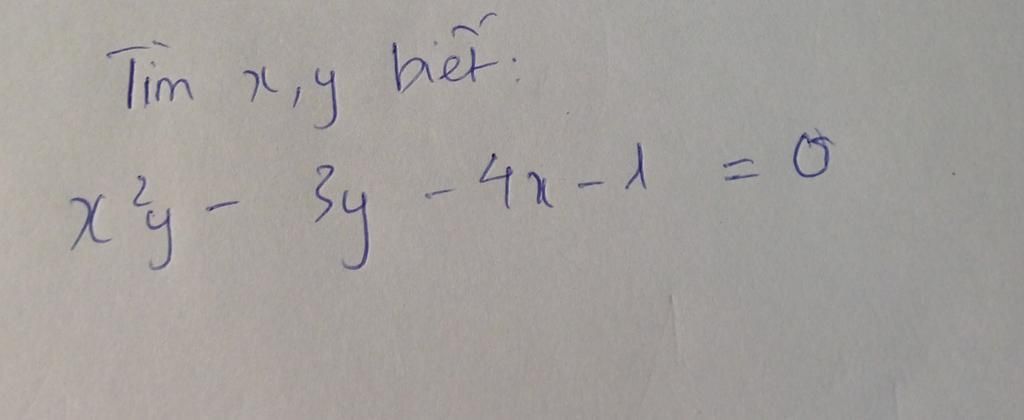 Tìm x, y biết:
x²y - 3y - 4x - 1 = 0